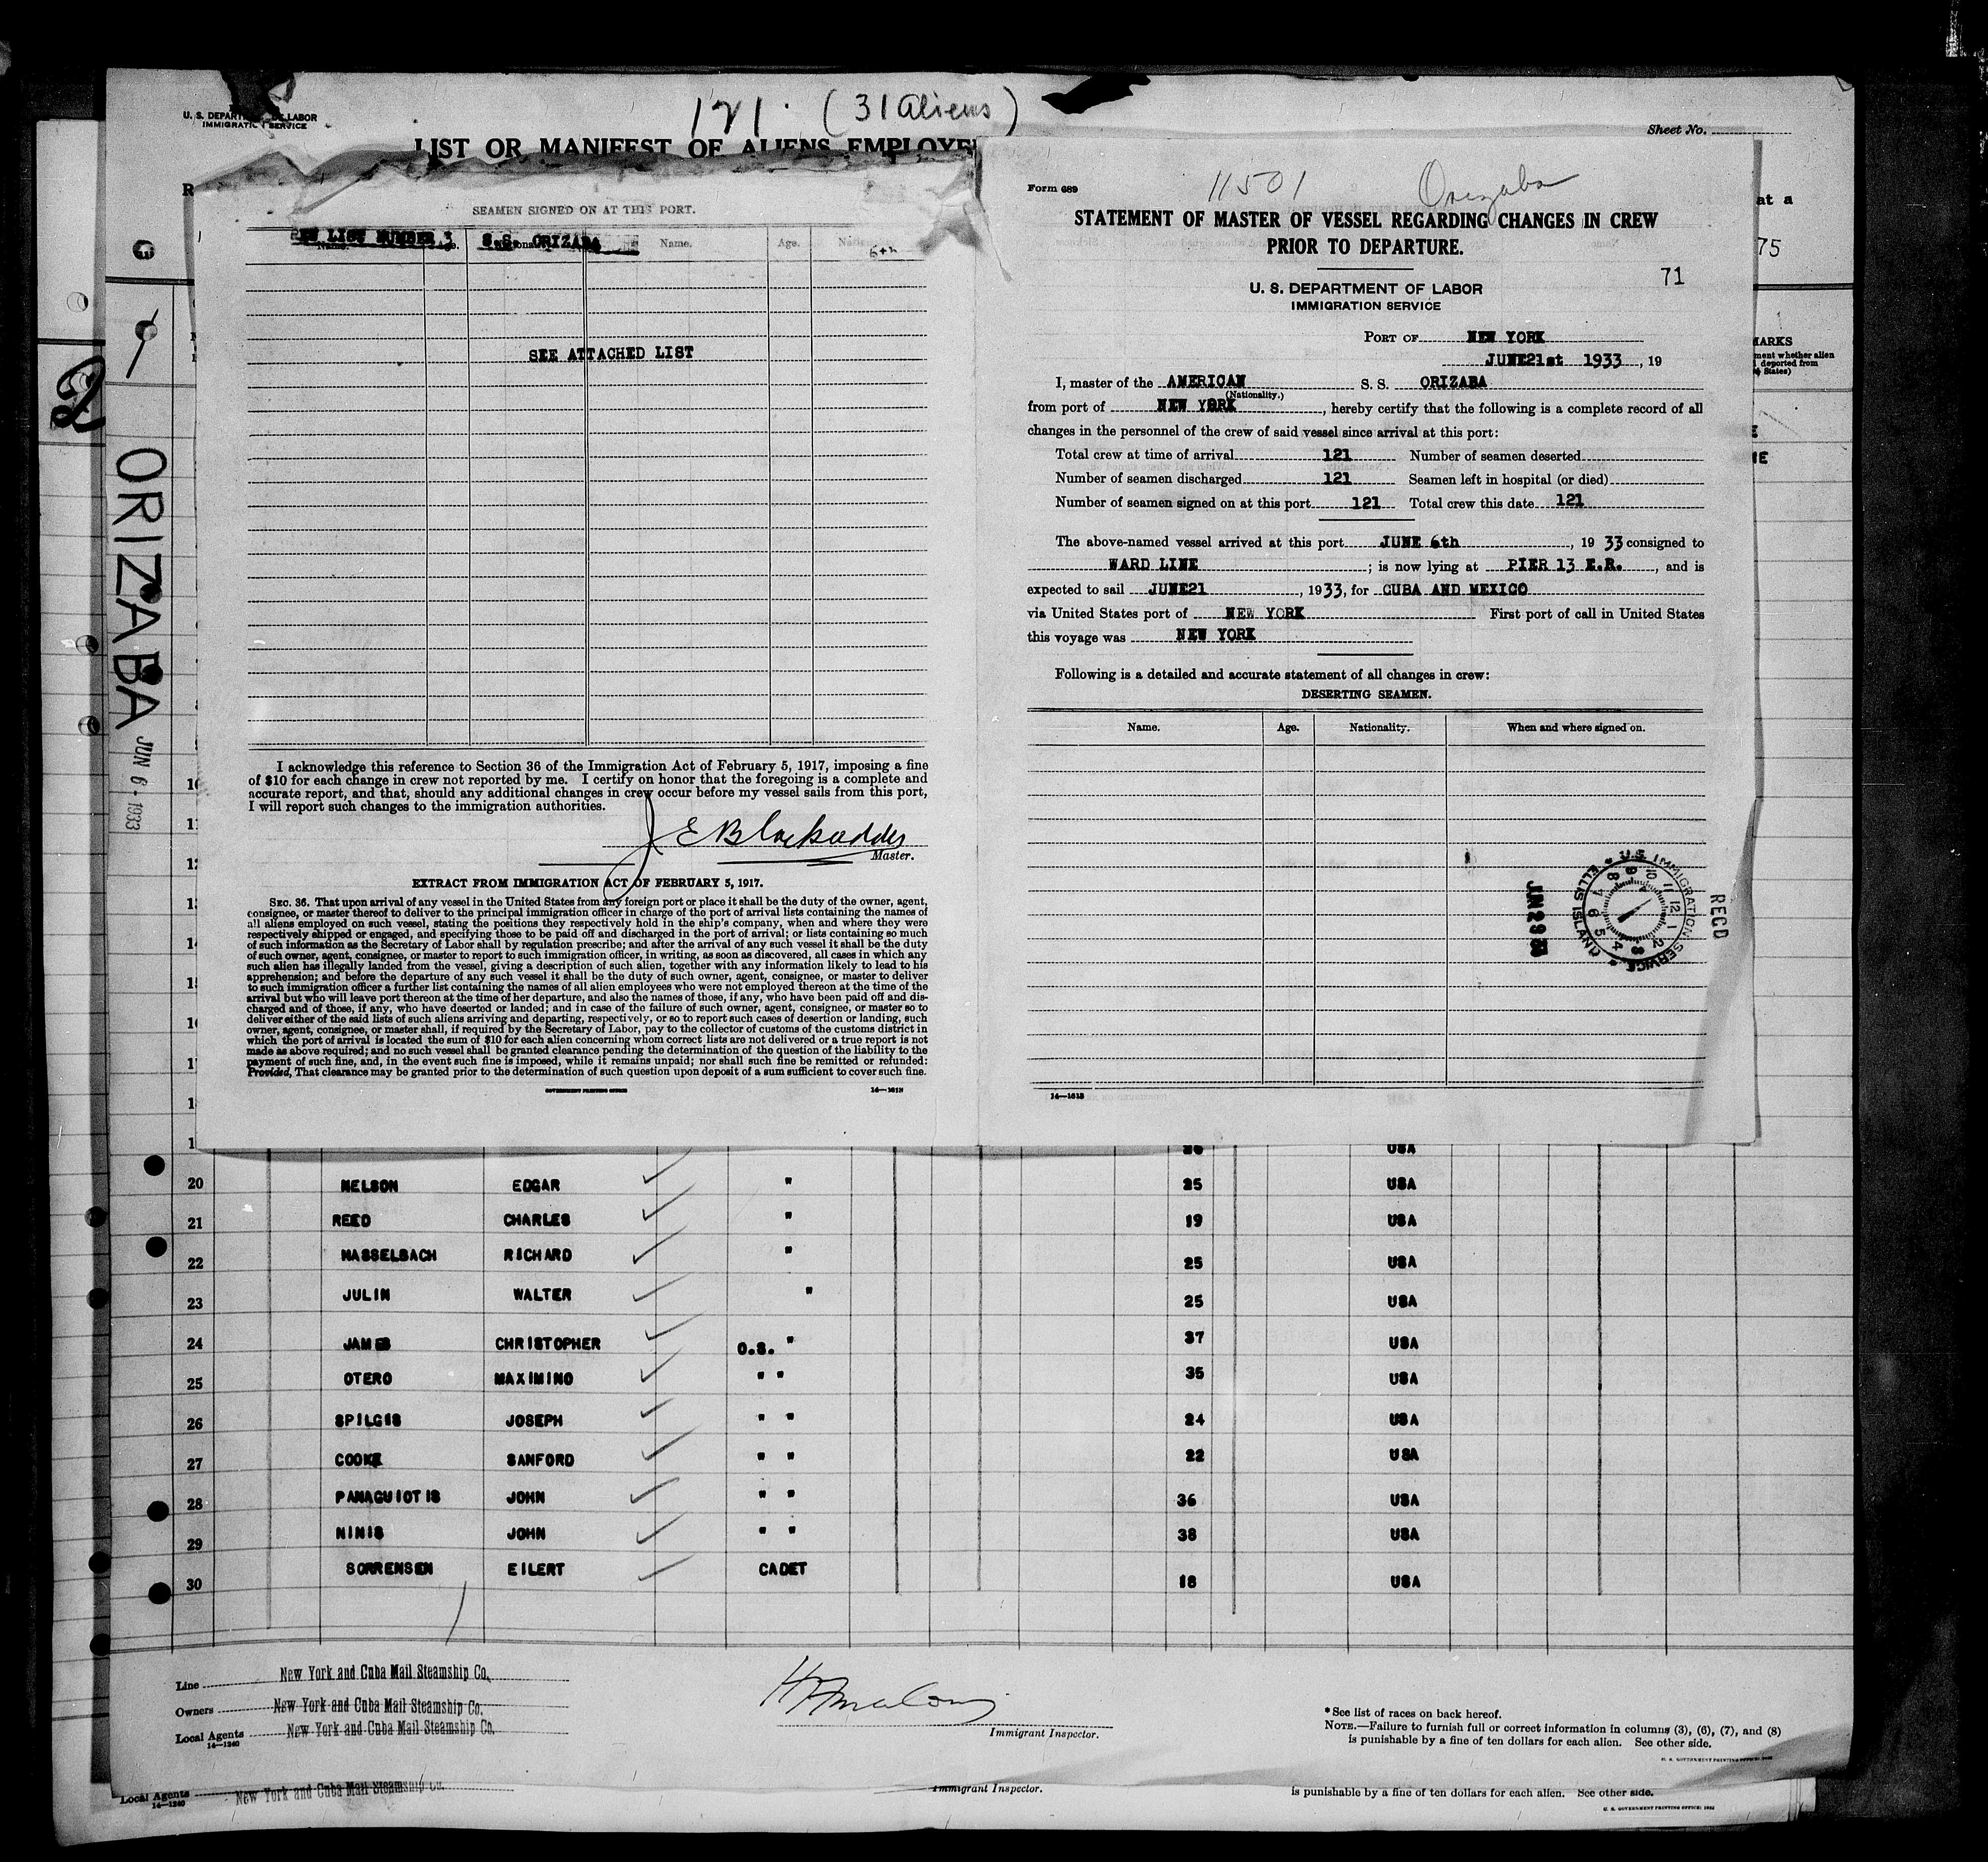 121. (31 Aliens)
U. S. DEPARTMENT OF LABOR
IMMIGRATION SERVICE
LIST OR MANIFEST OF ALIENS EMPLOYE
Sheet No.
at a
75
MARKS
ment whether alien
deported from
States)
E
NE
ORIZABA
JUN 6 - 1933
SEAMEN SIGNED ON AT THIS PORT.
LIST NUMBER
S.S. ORIZABA
Name.
Age.
6th
SEE ATTACHED LIST
I acknowledge this reference to Section 36 of the Immigration Act of February 5, 1917, imposing a fine
of $10 for each change in crew not reported by me. I certify on honor that the foregoing is a complete and
accurate report, and that, should any additional changes in crew occur before my vessel sails from this port,
I will report such changes to the immigration authorities.
J E Blackadder
Master.
EXTRACT FROM IMMIGRATION ACT OF FEBRUARY 5, 1917.
SEC. 36. That upon arrival of any vessel in the United States from any foreign port or place it shall be the duty of the owner, agent,
consignee, or master thereof to deliver to the principal immigration officer in charge of the port of arrival lists containing the names of
all aliens employed on such vessel, stating the positions they respectively hold in the ship's company, when and where they were
respectively shipped or engaged, and specifying those to be paid off and discharged in the port of arrival; or lists containing so much
of such information as the Secretary of Labor shall by regulation prescribe; and after the arrival of any such vessel it shall be the duty
of such owner, agent, consignee, or master to report to such immigration officer, in writing, as soon as discovered, all cases in which any
such alien has illegally landed from the vessel, giving a description of such alien, together with any information likely to lead to his
apprehension; and before the departure of any such vessel it shall be the duty of such owner, agent, consignee, or master to deliver
to such immigration officer a further list containing the names of all alien employees who were not employed thereon at the time of the
arrival but who will leave port thereon at the time of her departure, and also the names of those, if any, who have been paid off and dis-
charged and of those, if any, who have deserted or landed; and in case of the failure of such owner, agent, consignee, or master so to
deliver either of the said lists of such aliens arriving and departing, respectively, or so to report such cases of desertion or landing, such
owner, agent, consignee, or master shall, if required by the Secretary of Labor, pay to the collector of customs of the customs district in
which the port of arrival is located the sum of $10 for each alien concerning whom correct lists are not delivered or a true report is not
made as above required; and no such vessel shall be granted clearance pending the determination of the question of the liability to the
payment of such fine, and, in the event such fine is imposed, while it remains unpaid; nor shall such fine be remitted or refunded:
Provided, That clearance may be granted prior to the determination of such question upon deposit of a sum sufficient to cover such fine.
GOVERNMENT PRINTING OFFICE
14—1613
Form 689
11501
Orizaba
STATEMENT OF MASTER OF VESSEL REGARDING CHANGES IN CREW
PRIOR TO DEPARTURE.
71
U. S. DEPARTMENT OF LABOR
IMMIGRATION SERVICE
PORT OF NEW YORK
JUNE21st 1933, 19
I, master of the AMERICAN S. S. ORIZABA
(Nationality.)
from port of NEW YORK, hereby certify that the following is a complete record of all
changes in the personnel of the crew of said vessel since arrival at this port:
Total crew at time of arrival 121 Number of seamen deserted
Number of seamen discharged 121 Seamen left in hospital (or died)
Number of seamen signed on at this port 121 Total crew this date 121
The above-named vessel arrived at this port JUNE 6th, 19 33 consigned to
WARD LINE; is now lying at PIER 13 E.R., and is
expected to sail JUNE21, 1933, for CUBA AND MEXICO
via United States port of NEW YORK First port of call in United States
this voyage was NEW YORK
Following is a detailed and accurate statement of all changes in crew:
DESERTING SEAMEN.
Name. Age. Nationality. When and where signed on.
RECD
U.S. IMMIGRATION SERVICE ELLIS ISLAND
JUN 29 33
14—1613
USA
20 NELSON EDGAR " 25 USA
21 REED CHARLES " 19 USA
22 HASSELBACH RICHARD " 25 USA
23 JULIN WALTER " 25 USA
24 JAMES CHRISTOPHER O.S. " 37 USA
25 OTERO MAXIMINO " " 35 USA
26 SPILGIS JOSEPH " " 24 USA
27 COOKE SANFORD " " 22 USA
28 PANAGUIOTIS JOHN " " 36 USA
29 NINIS JOHN " " 38 USA
30 SORRENSEN EILERT CADET 18 USA
Line New York and Cuba Mail Steamship Co.
Owners New York and Cuba Mail Steamship Co.
Local Agents New York and Cuba Mail Steamship Co.
14—1240
Immigrant Inspector.
* See list of races on back hereof.
NOTE.—Failure to furnish full or correct information in columns (3), (6), (7), and (8)
is punishable by a fine of ten dollars for each alien. See other side.
Local Agents New York and Cuba Mail Steamship Co.
14—1240
Immigrant Inspector.
is punishable by a fine of ten dollars for each alien. See other side.
U. S. GOVERNMENT PRINTING OFFICE: 1932